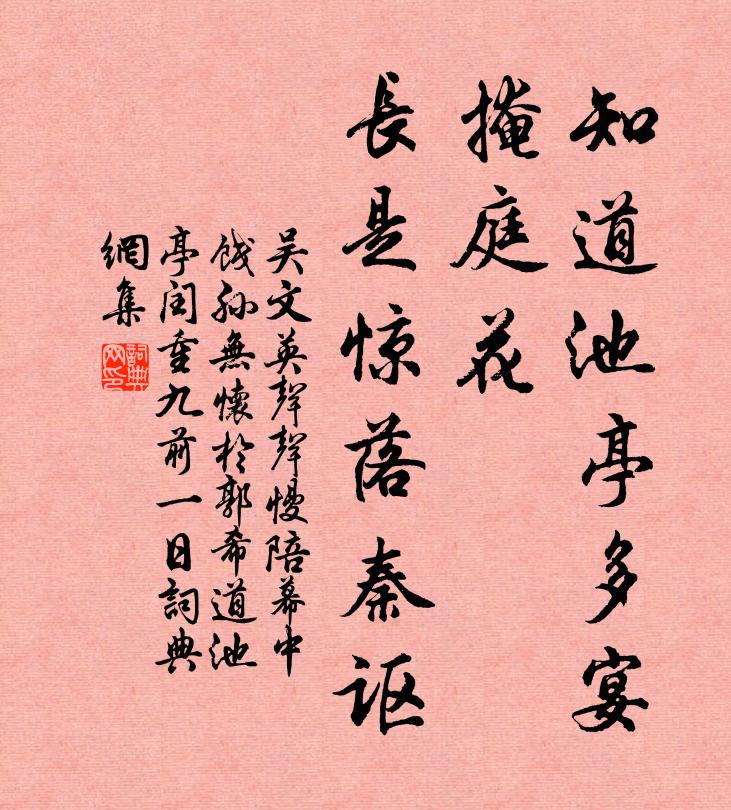 知道池亭多宴
掩庭花
長是惊落秦讴
吴文英聲聲慢陪幕中
餞孙無懷於郭希道池
亭閏重九前一日詞典
網集
詞典网印